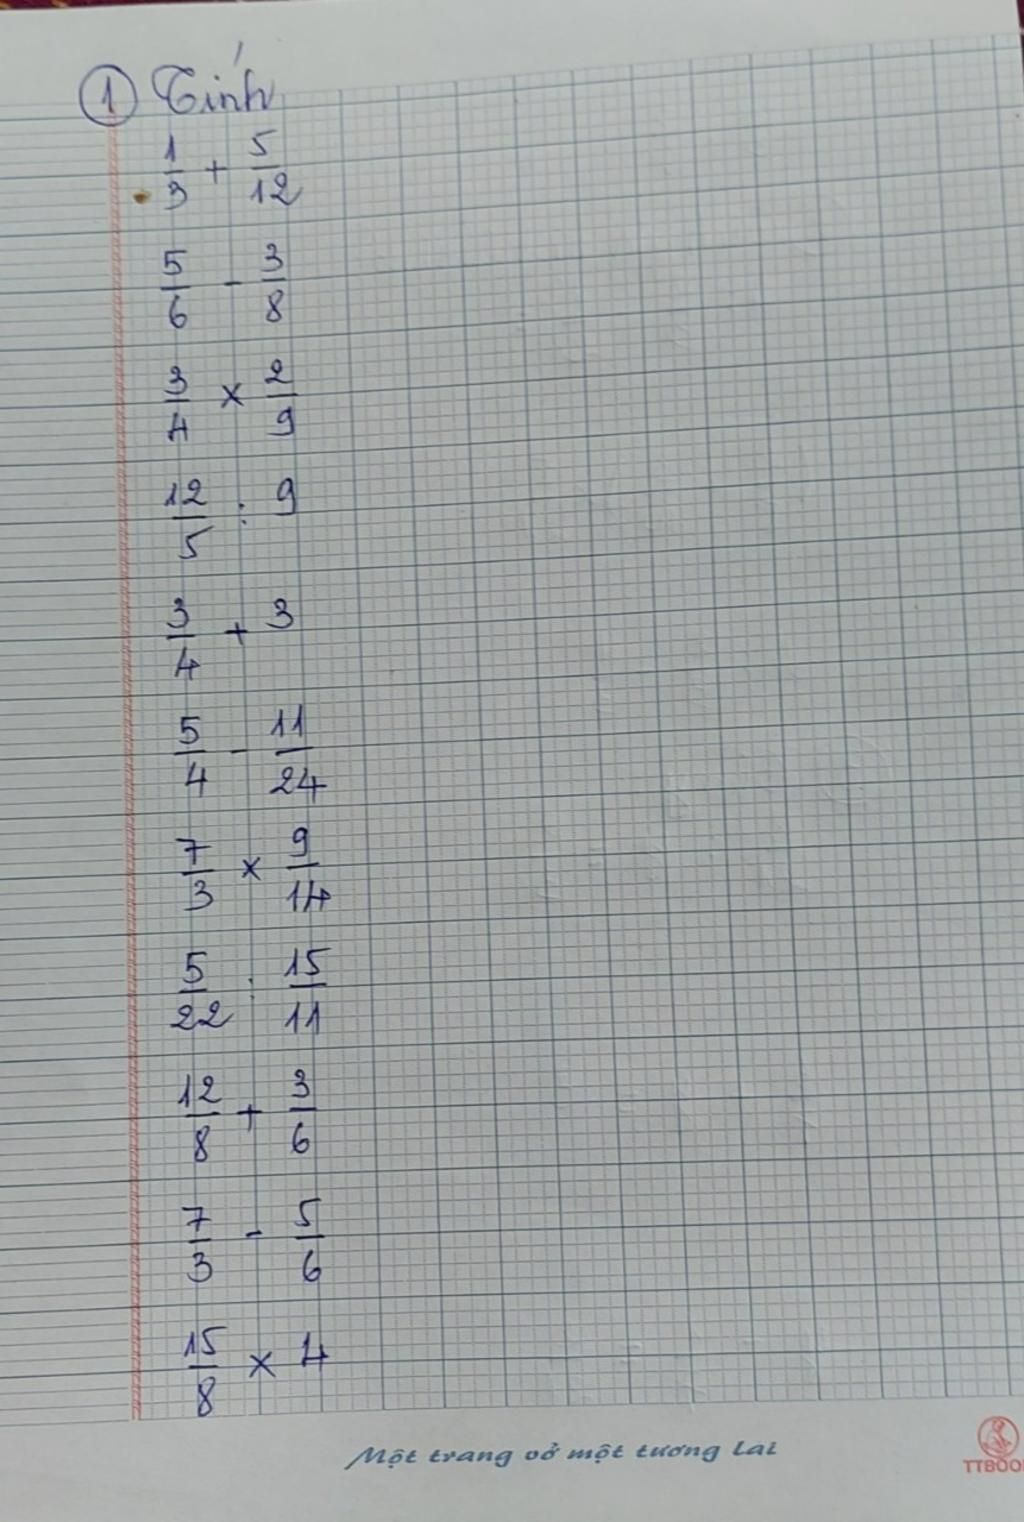 ① Tính
1/3 + 5/12
5/6 - 3/8
3/4 × 2/9
12/5 : 9
3/4 + 3
5/4 - 11/24
7/3 × 9/14
5/22 : 15/11
12/8 + 3/6
7/3 - 5/6
15/8 × 4
Một trang vở một tương lai
TTBOO